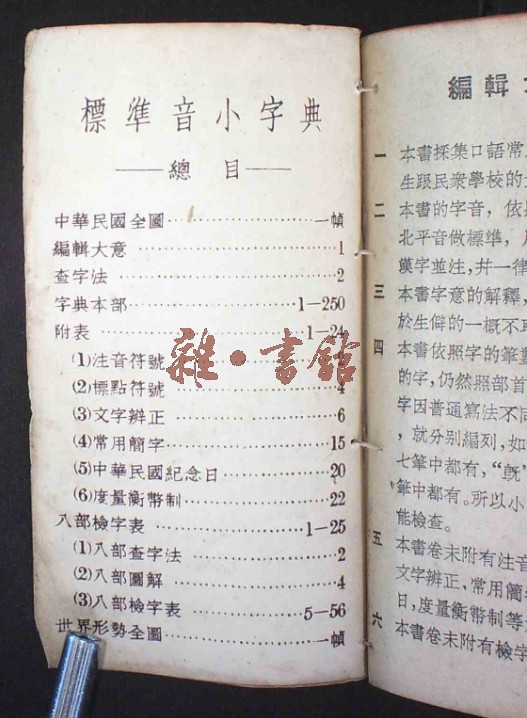 標準音小字典
——總目——
中華民國全圖……一幀
編輯大意……1
查字法……2
字典本部……1—250
附表……1—24
(1)注音符號
(2)標點符號……4
(3)文字辨正……6
(4)常用簡字……15
(5)中華民國紀念日……20
(6)度量衡幣制……22
八部檢字表……1—25
(1)八部查字法……2
(2)八部圖解……4
(3)八部檢字表……5—56
世界形勢全圖……一幀
雜·書館
編輯
一 本書採集口語常
生跟民衆學校的
二 本書的字音，依
北平音做標準，
漢字並注，幷一律
三 本書字意的解釋
於生僻的一概不
四 本書依照字的筆
的字，仍然照部首
字因普通寫法不同
，就分別編列，如
七筆中都有，“旣”
筆中都有。所以小
能檢查。
五 本書卷末附有注音
文字辨正、常用簡
日，度量衡幣制等
六 本書卷末附有檢字